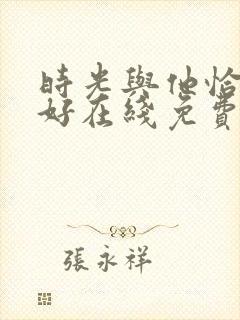 時光與他恰
好在綫免費
張永祥